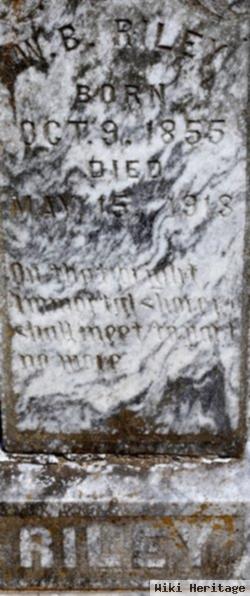 W. B. RILEY
BORN
OCT. 9. 1855
DIED
MAY 15, 1918
On that bright
immortal shore
shall meet to part
no more
RILEY
Wiki Heritage